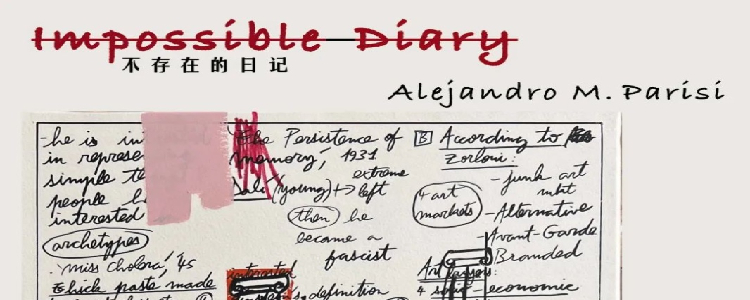 Impossible Diary
不存在的日记
Alejandro M. Parisi
-he is in
in represe
simple t
people
interested
archetypes
"Miss Cholera", '45
thick paste made
The Persistence of
memory, 1931
Dalí (young) → extreme left
then he
became a
fascist
definition
B According to
Zorloni:
4 art markets
-junk art mkt
-Alternative
-Avant-Garde
-Branded
Art
4 socio-economic